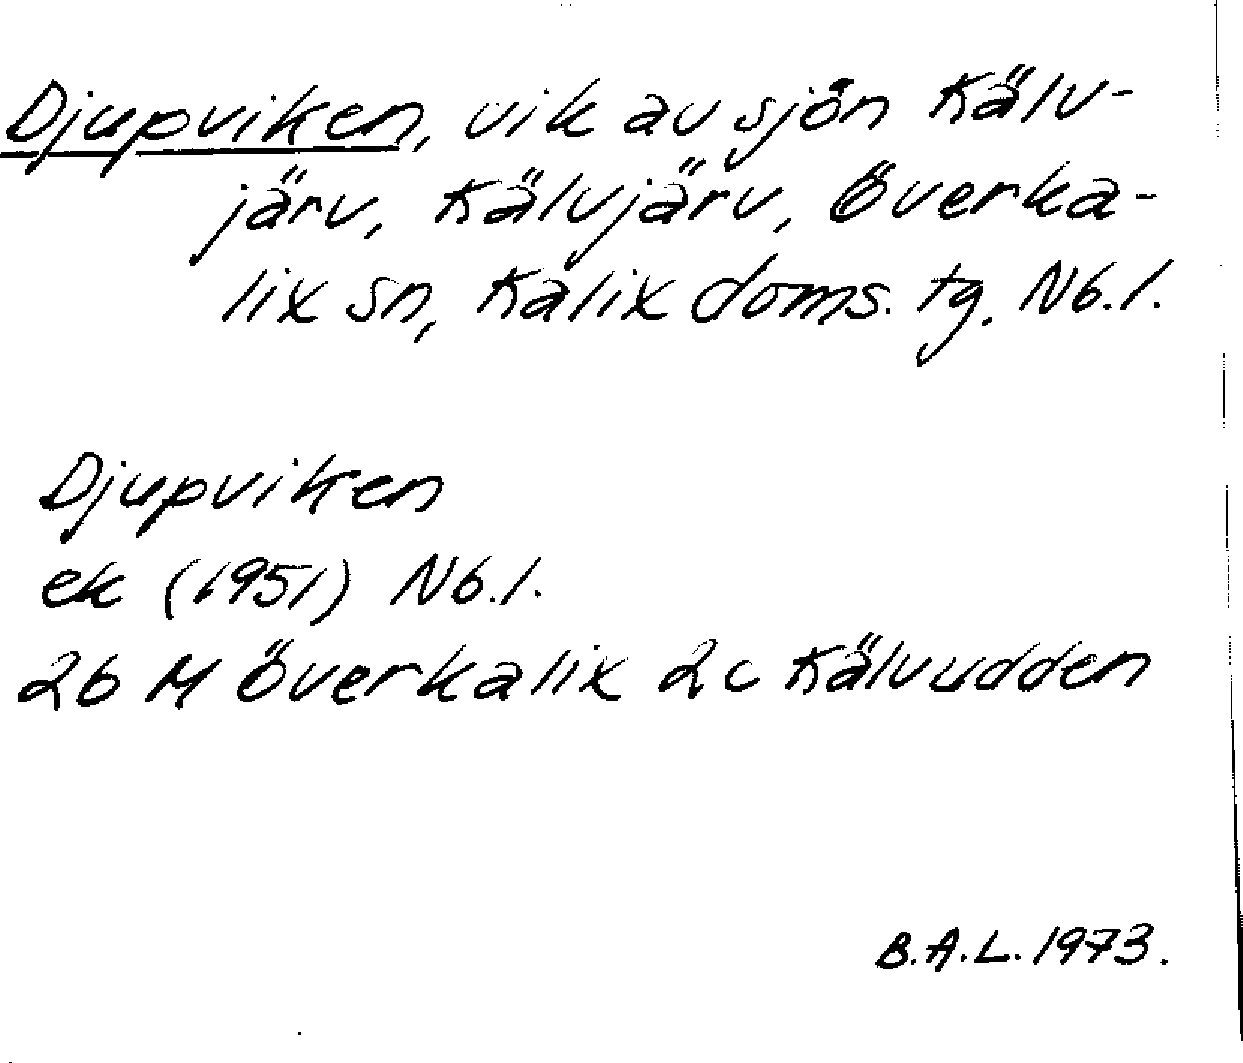 Djupviken, vik av sjön Kälv-
järv, Kälvjärv, Överka-
lix sn, Kalix doms. tg. Nb. l.
Djupviken
ek (1951) Nb. l.
26 M Överkalix 2c Kälvudden
B.A.L. 1973.